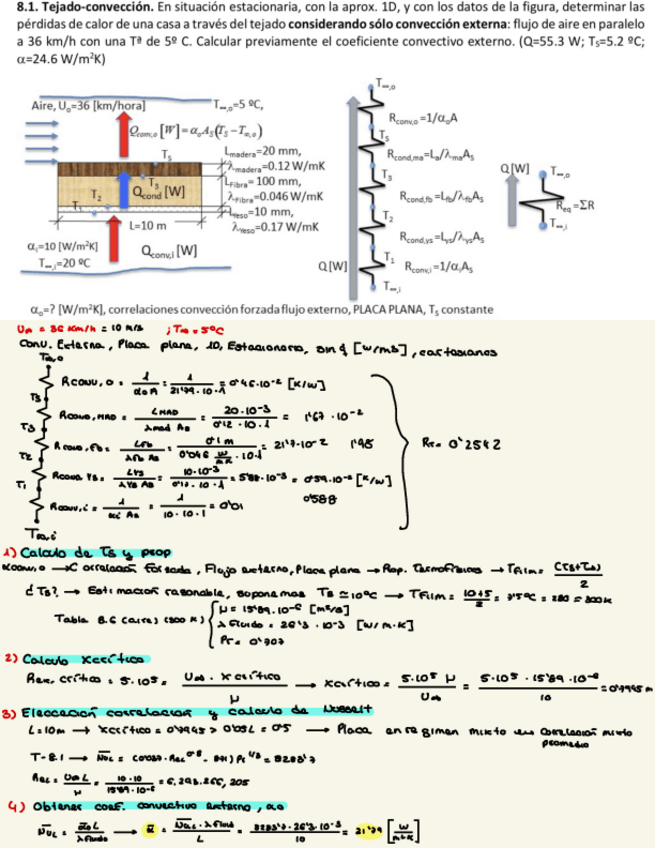 8.1. Tejado-convección. En situación estacionaria, con la aprox. 1D, y con los datos de la figura, determinar las
pérdidas de calor de una casa a través del tejado considerando sólo convección externa: flujo de aire en paralelo
a 36 km/h con una Tª de 5º C. Calcular previamente el coeficiente convectivo externo. (Q=55.3 W; TS=5.2 ºC;
α=24.6 W/m²K)
Aire, Uo=36 [km/hora]
T∞,o=5 ºC,
Qconv,o [W] = αoAS(TS−T∞,o)
TS
Lmadera=20 mm,
λmadera=0.12 W/mK
T3
Qcond [W]
LFibra= 100 mm,
λFibra=0.046 W/mK
T2
T1
LYeso=10 mm,
λYeso=0.17 W/mK
L=10 m
αi=10 [W/m²K]
T∞,i=20 ºC
Qconv,i [W]
T∞,o
Rconv,o =1/αoA
TS
Rcond,ma=La/λmaAS
T3
Rcond,fb=Lfb/λfbAS
T2
Rcond,ys=Lys/λysAS
T1
Rconv,i=1/αiAS
T∞,i
Q[W]
Q[W]
T∞,o
Req=ΣR
T∞,i
αo=? [W/m²K], correlaciones convección forzada flujo externo, PLACA PLANA, TS constante
U∞ = 36 km/h = 10 m/s ; T∞ = 5ºC
Conv. Externa, Placa plana, 1D, Estacionario, sin q [W/m3], cartesianas
T∞,o
Rconv,o = 1/αo A = 1/21'79·10·1 = 0'46·10-2 [K/W]
TS
Rcond,MAD = LMAD/λmad As = 20·10-3/0'12·10·1 = 1'67·10-2
T3
Rcond,fb = Lfb/λfb As = 0'1 m/0'046 W/mK·10·1 = 21'7·10-2
T2
Rcond YS = LYS/λYS As = 10·10-3/0'17·10·1 = 5'88·10-3 = 0'59·10-2 [K/W]
0'588
T1
Rconv,i = 1/αi As = 1/10·10·1 = 0'01
T∞,i
RT = 0'2542
1) Calculo de Ts y prop
Rconv,o → Correlación forzada, Flujo externo, Placa plana → Prop. Termofísicas → Tfilm = (Ts+T∞)/2
¿Ts? → Estimación razonable, suponemos Ts ≃ 10ºC → Tfilm = 10+5/2 = 7'5ºC = 280 ≃ 300K
Tabla 8.6 (aire) (300 K)
μ = 15'89·10-6 [m²/s]
λ Fluido = 26'3·10-3 [W/m·K]
Pr = 0'707
2) Calculo Xcrítico
Rex, crítico = 5·105 = U∞·x crítico/μ → xcrítico = 5·105 μ/U∞ = 5·105·15'89·10-6/10 = 0'7945 m
3) Eleccación correlacion y calculo de Nusselt
L = 10m → xcrítico = 0'7945 > 0'05L = 0'5 → Placa en regimen mixto correlacion mixto
promedio
ReL = U∞ L/μ = 10·10/15'89·10-6 = 6.293.266, 205
4) Obtener coef. convectivo externo, αo
NuL = αo L/λ fluido → α = NuL·λ Fluid/L = 8283'7·26'3·10-3/10 = 21'79 [W/m²K]